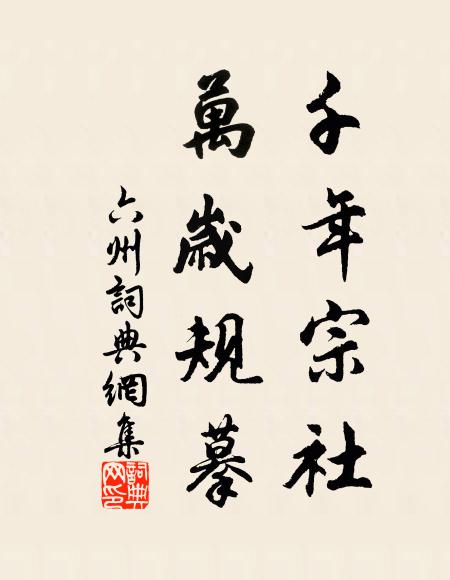 千年宗社
萬歲規摹
六州詞典網集
詞典網印